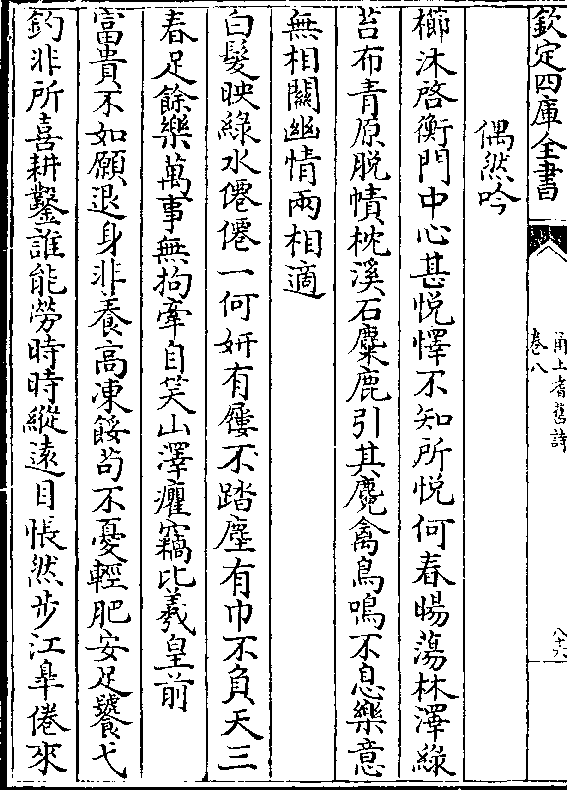 欽定四庫全書
甬上耆舊詩
卷八
偶然吟
櫛沐啓衡門中心甚悦懌不知所悦何春暘蕩林澤緑
苔布青原脱幘枕溪石麋鹿引其麑禽鳥鳴不息樂意
無相關幽情兩相適
白髮映緑水僊僊一何妍有屨不踏塵有巾不負天三
春足餘樂萬事無拘牽自笑山澤癯竊比羲皇前
富貴不如願退身非養高凍餒苟不憂輕肥安足饕弋
釣非所喜耕鑿誰能勞時時縱遠目悵然步江臯倦來